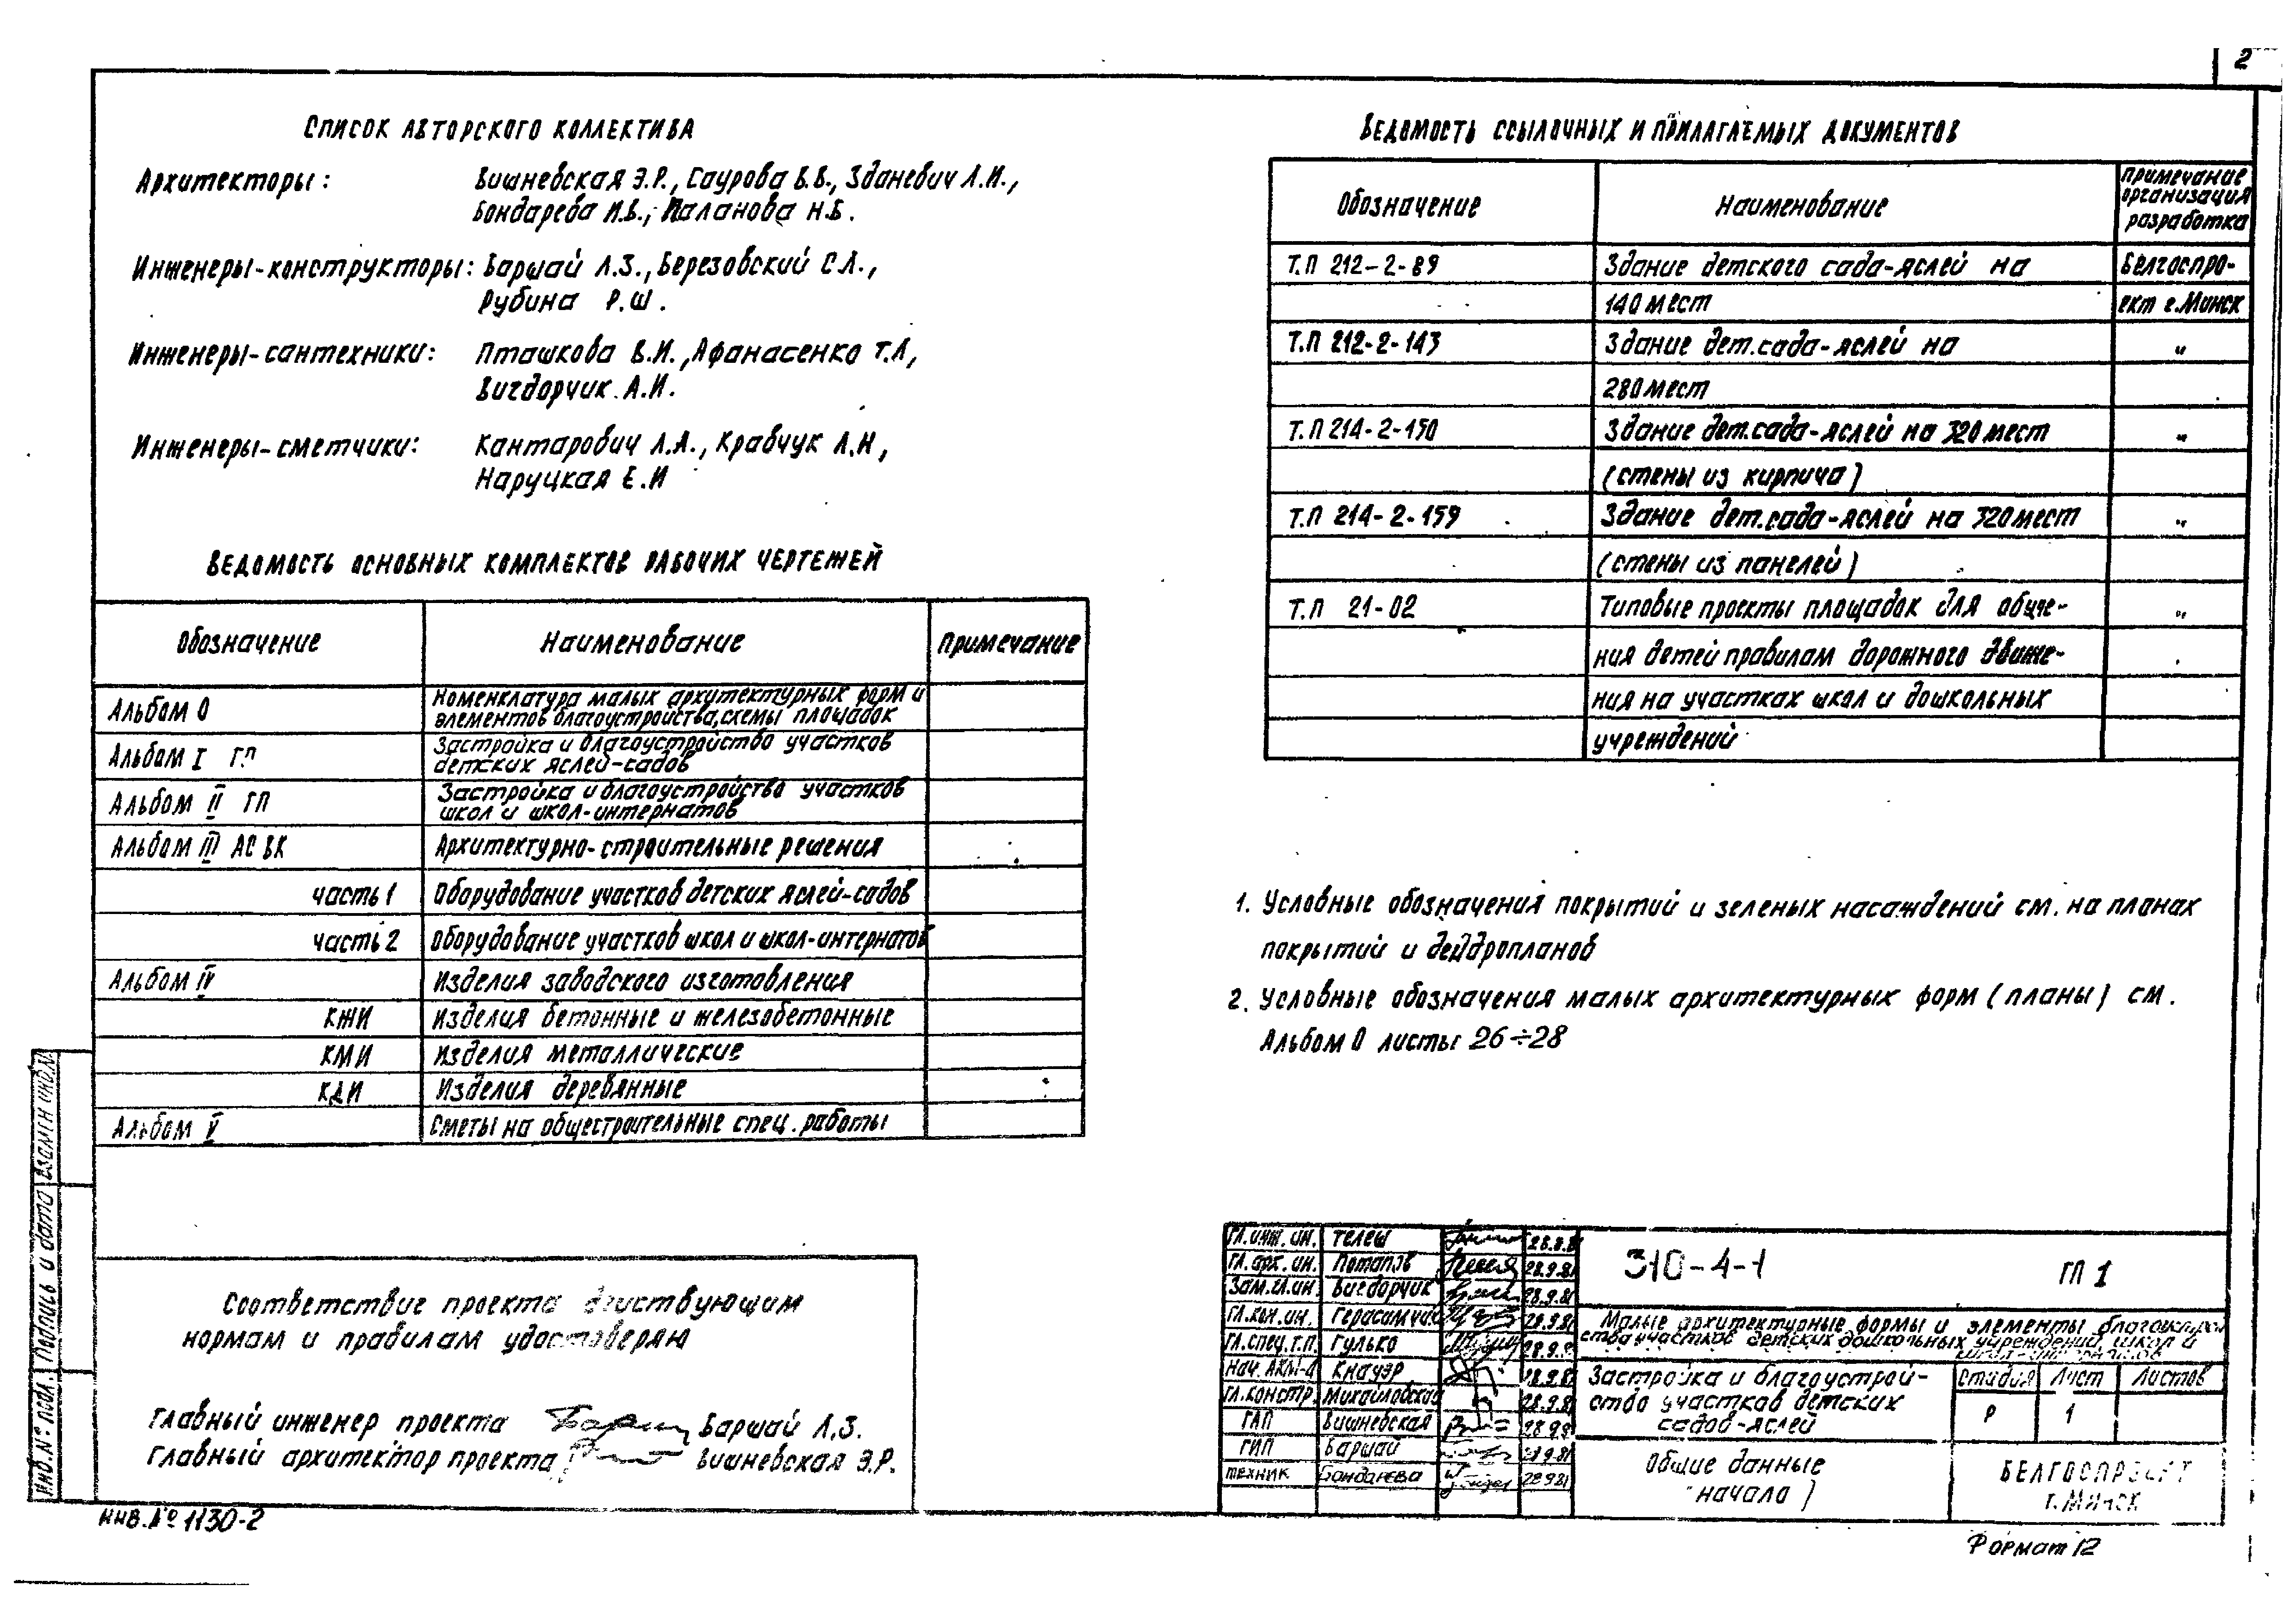 2
Список авторского коллектива
Архитекторы: Вишневская Э.Р., Саурова В.В., Зданевич Л.И.,
Бондарева И.В., Паланова Н.Б.
Инженеры-конструкторы: Варшай Л.З., Березовский С.Л.,
Рубина Р.Ш.
Инженеры-сантехники: Пташкова В.И., Афанасенко Т.Л,
Вигдорчик А.И.
Инженеры-сметчики: Кантарович Л.А., Кравчук Л.Н,
Наруцкая Е.И
Ведомость основных комплектов рабочих чертежей
Обозначение Наименование Примечание
Альбом 0 Номенклатура малых архутектурных форм и
элементов благоустройства, схемы площадок
Альбом I ГП Застройка и благоустройство участков
детских яслей-садов
Альбом II ГП Застройка и благоустройство участков
школ и школ-интернатов
Альбом III АС ВК Архитектурно-строительные решения
часть 1 Оборудование участков детских яслей-садов
часть 2 Оборудование участков школ и школ-интернатов
Альбом IV Изделия заводского изготовления
КЖИ Изделия бетонные и железобетонные
КМИ Изделия металлические
КДИ Изделия деревянные
Альбом V Сметы на общестроительные спец. работы
Соответствие проекта действующим
нормам и правилам удостоверяю
Главный инженер проекта Варшай Л.З.
Главный архитектор проекта Вишневская Э.Р.
Инв. № 1130-2
Инв. № подл. Подпись и дата Взамен инв. №
Ведомость ссылочных и прилагаемых документов
Обозначение Наименование Примечание организация разработка
Т.П 212-2-89 Здание детского сада-яслей на Белгоспро-
140 мест ект г. Минск
Т.П 212-2-143 Здание дет. сада-яслей на "
280 мест
Т.П 214-2-150 Здание дет. сада-яслей на 320 мест "
(стены из кирпича)
Т.П 214-2-159 Здание дет. сада-яслей на 320 мест "
(стены из панелей)
Т.П 21-02 Типовые проекты площадок для обуче- "
ния детей правилам дорожного движе-
ния на участках школ и дошкольных
учреждений
1. Условные обозначения покрытий и зеленых насаждений см. на планах
покрытий и дендропланов
2. Условные обозначения малых архитектурных форм (планы) см.
Альбом 0 листы 26÷28
Гл. инж. ин. Телеш 28.9.81
Гл. арх. ин. Потапов 28.9.81
Зам. гл. ин. Вигдорчик 28.9.81
Гл. кон. ин. 28.9.81
Гл. спец. т.п. Гулько 28.9.81
Нач. АКМ-4 Кнауэр 28.9.81
Гл. констр. Михайловская 28.9.81
ГАП Вишневская 28.9.81
ГИП Варшай 28.9.81
Техник Бондарева 28.9.81
310-4-1 ГП 1
Малые архитектурные формы и элементы благоустрой
ства участков детских дошкольных учреждений, школ и
школ-интернатов
Застройка и благоустрой-
ство участков детских
садов-яслей
Стадия Лист Листов
Р 1
Общие данные
начало)
БЕЛГОСПРОЕКТ
г. Минск
Формат 12